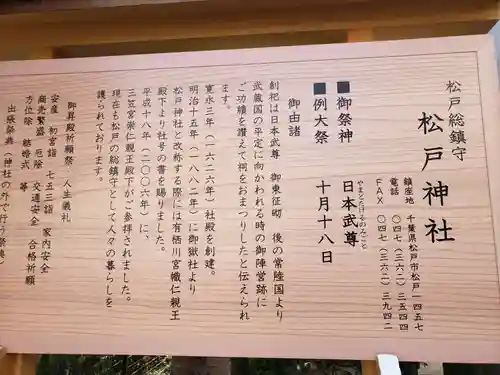 松戸総鎮守
松戸神社
鎮座地 千葉県松戸市松戸一四五七
電話 〇四七(三六二)三五四四
FAX 〇四七(三六二)三九四二
■御祭神 日本武尊
やまとたけるのみこと
■例大祭 十月十八日
御由諸
創祀は日本武尊 御東征砌 後の常陸国より
武蔵国の平定に向かわれる時の御陣営跡に
ご功績を讃えて祠をおまつりしたと伝えられ
ます。
寛永三年(一六二六年)社殿を創建。
明治十五年(一八八二年)に御嶽社より
松戸神社と改称する際には有栖川宮幟仁親王
殿下より社号の書を賜りました。
平成十八年(二〇〇六年)に、
三笠宮崇仁親王殿下がご参拝されました。
現在も松戸の総鎮守として人々の暮らしを
護られております。
御昇殿祈願祭・人生儀礼
安産 初宮詣 七五三詣 家内安全
商売繁盛 厄除 交通安全 合格祈願
方位除 結婚式 等
出張祭典(神社の外で行う祭典